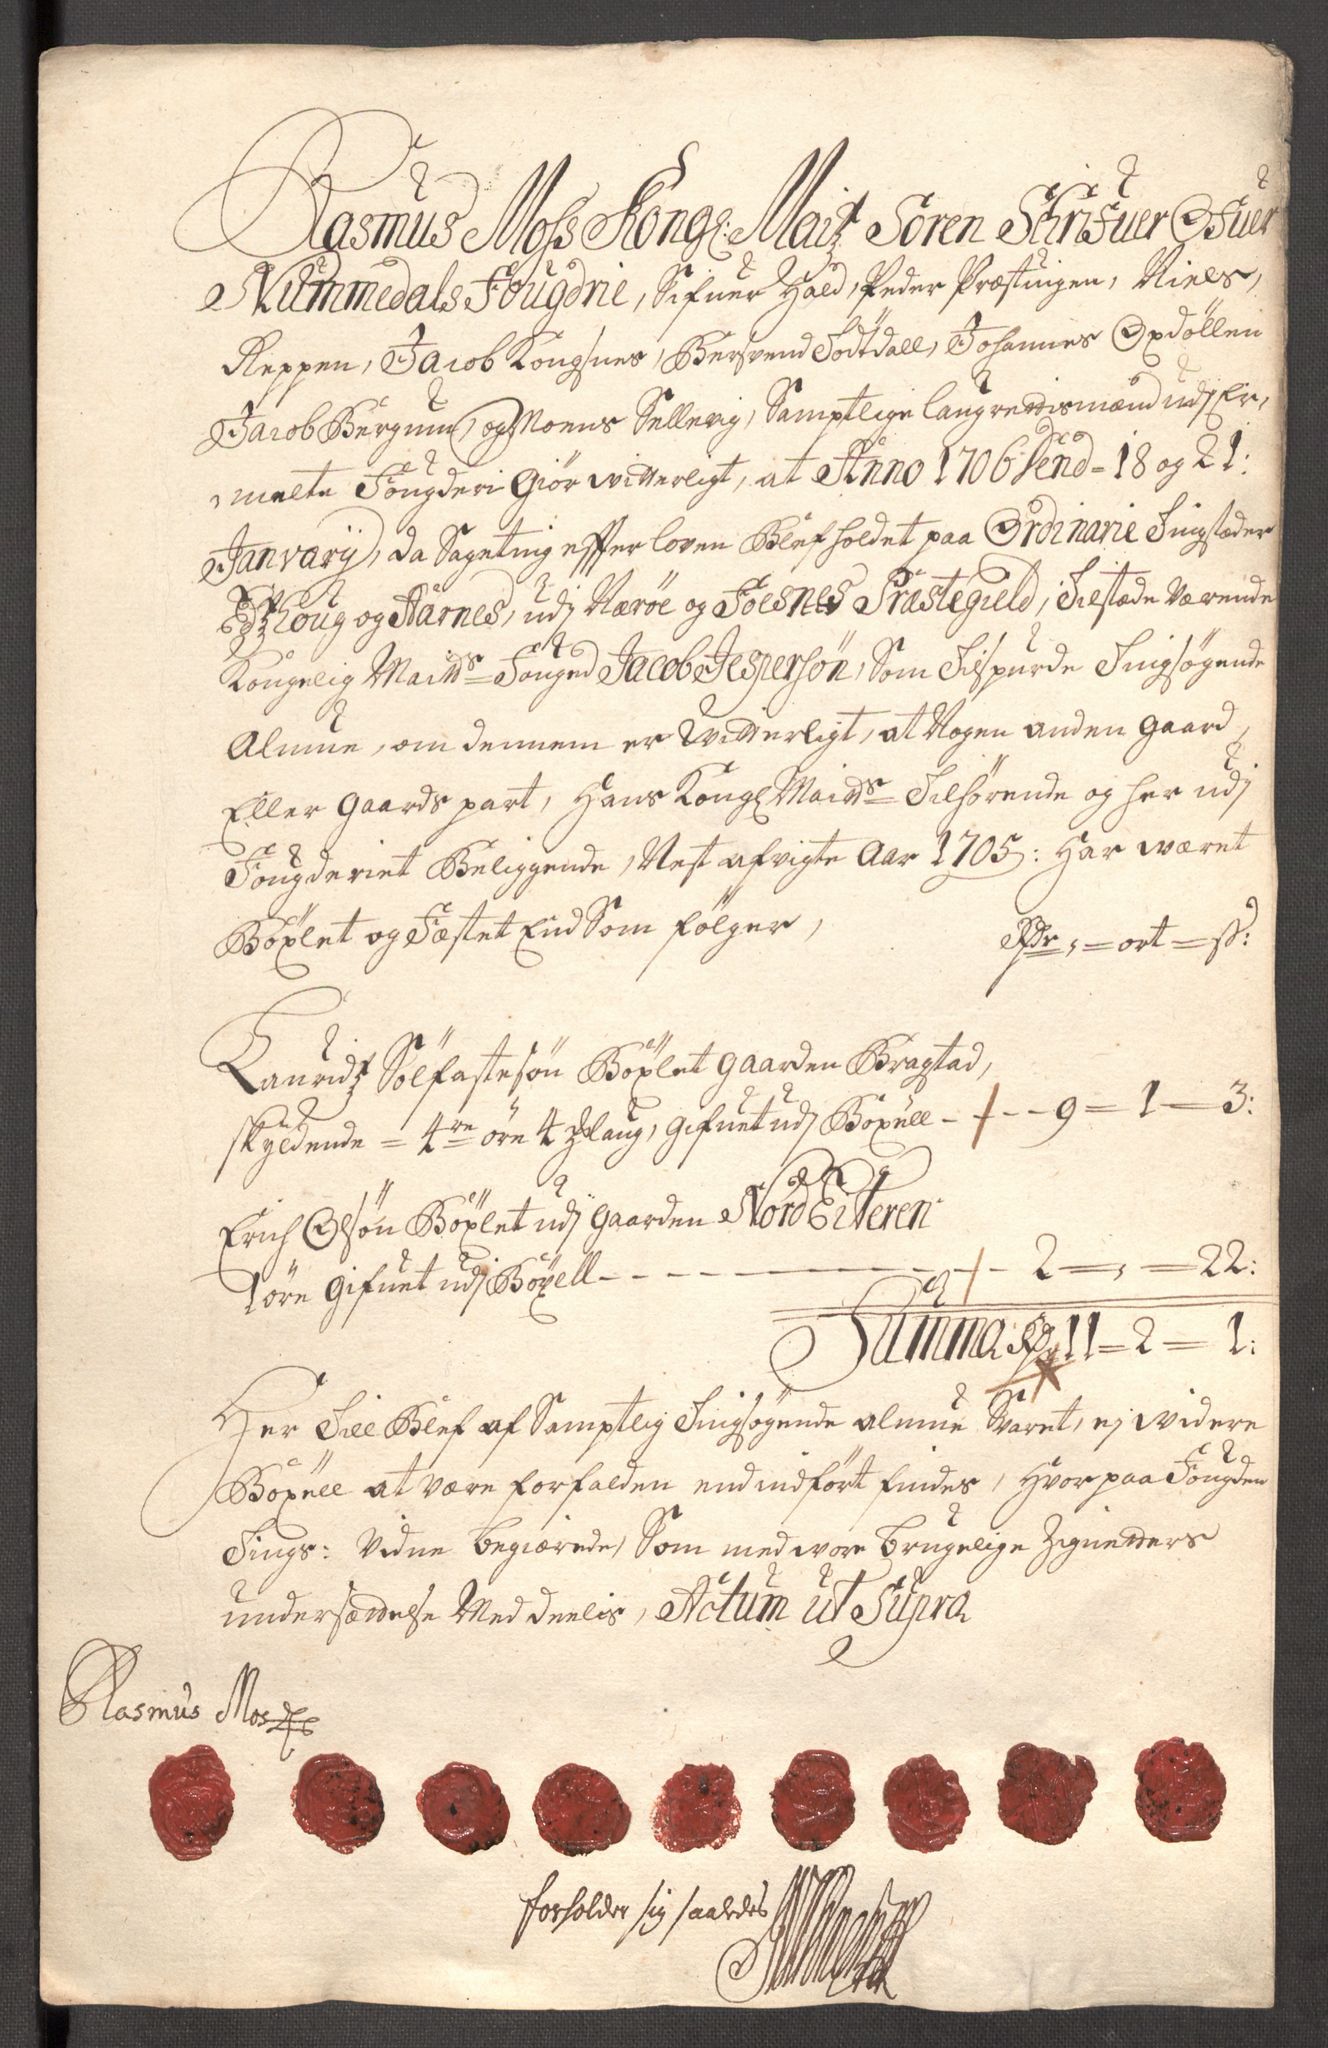 Rasmus Moss Kongl: Maitz Soren Schrifuer Ofuer
Nummedals Fougdrie, Sifuer Hald, Peder Præstingen, Niels,
Reppen, Jacob Kongsnes, Bersvend Södtdall, Johannes Opdöllen
Jacob Bergum, og Moens Sellevig, Samptlige laugrettismænd udj Er,
melte Fougderi Giör witterligt, at Anno 1706 den 18 og 21:
Janvarij, da Sageting effter loven Blef holdet paa Ordinarie Tingstæder
Schoug og Aarnes, udj Næröe og Foesnes Præstegield, Tilstæde Værende
Kongelig Maitts Fouged Jacob Jespersön, Som Tilspurde Tingsögende
Almue, om dennem er Witterligt, at Nogen anden gaard,
Eller gaards part, Hans Kongl Maitts Tilhörende og her udj
Fougderiet Beliggende, Nest afvigte Aar 1705: Har wæret
Böxlet og Fæstet End Som fölger,
Rdr = ort = ß:
Lauridz Sölfastesön Böxlet gaarden Bragstad,
skyldende = 4re öre 4 laug, gifuet udj Böxell - - - 9 = 1 = 3:
Erich Olsön Böxlet udj gaarden Nord Eiteren
1 öre gifuet udj Böxell - - - - - 2 = , = 22:
Summa Rdr 11 = 2 = 1:
Her Till Blef af Samptlig Tingsögende almue Svaret, ej widere
Böxell at være forfalden end indfört findes, Hvorpaa Fougden
Tings: Vidne begiærede, Som med wore brugelige Zignetters
undersættelse Meddeelis, Actum ut Supra
Rasmus Moss
forholder sig saaledes